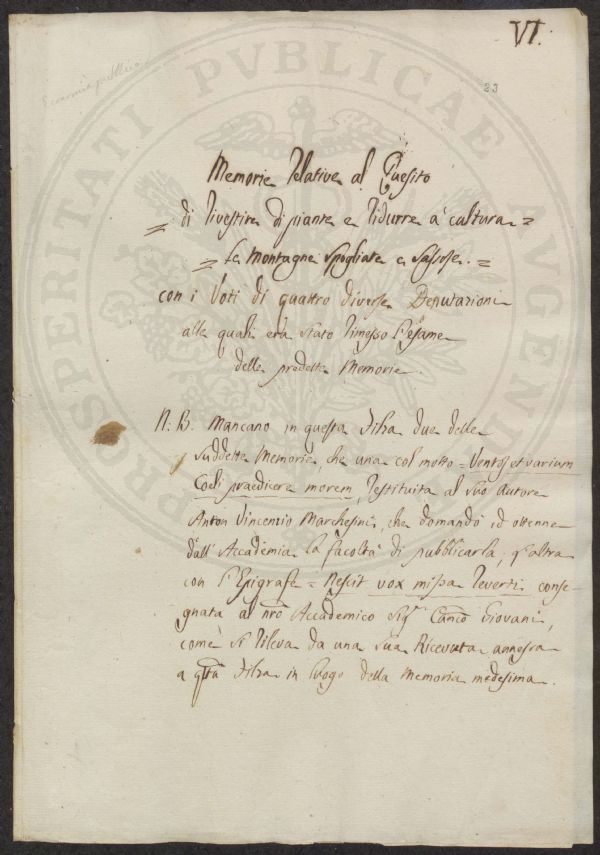 VI.
Economia publica
23
PROSPERITATI PVBLICAE AVGENDAE
Memorie Relative al Quesito
= di rivestire di piante e ridurre a' cultura =
= Le Montagne Spogliate e Sassose. =
con i Voti di quattro diverse Deputazioni
alle quali era stato rimesso l'esame
delle predette Memorie.
N: B. Mancano in questa Filza due delle
suddette Memorie, che una col motto = Ventos et varium
Coeli praedicere morem, restituita al suo Autore
Anton Vincenzio Marchesini, che domandò ed ottenne
dall'Accademia la facoltà di pubblicarla, e l'altra
con l'Epigrafe = Nescit vox missa reverti. conse-
gnata al nrō Accademico Sigr. Canco Giovani,
come si rileva da una sua Ricevuta annessa
a qsta Filza in luogo della Memoria medesima.